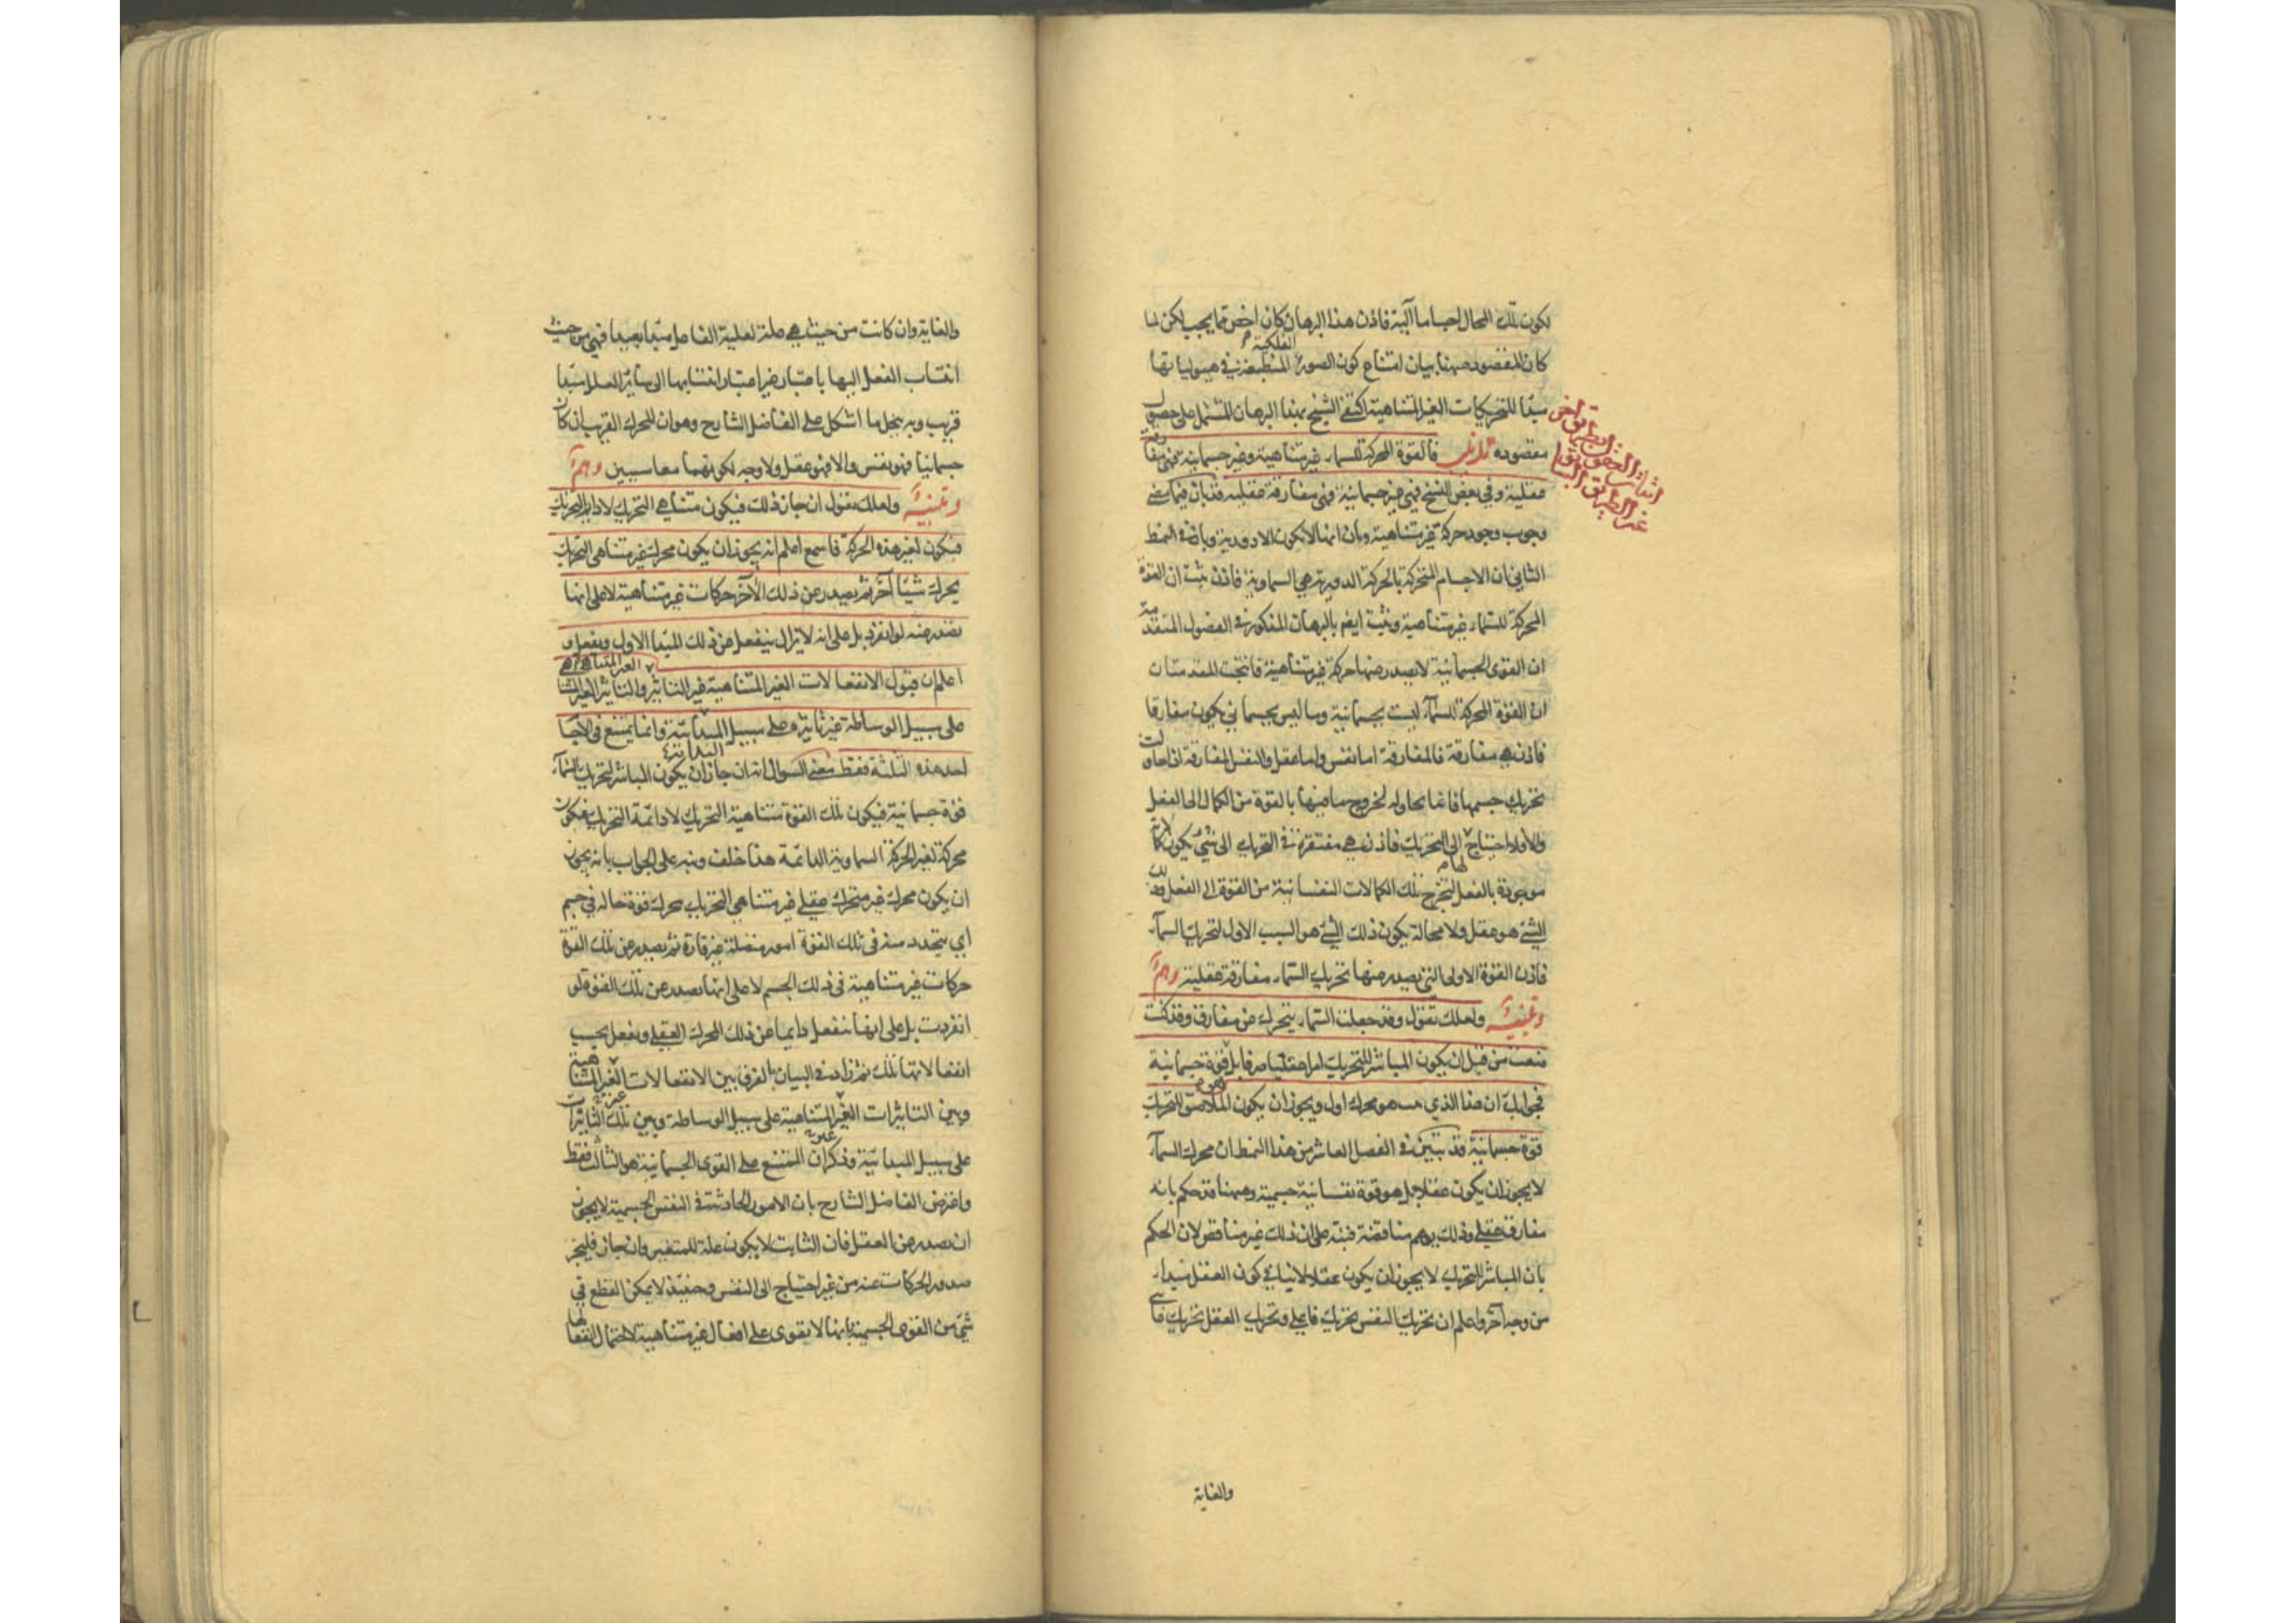 تكون تلك المحال اجساما آلية فاذن هذا البرهان كان اخص مما يجب لكن لما
كان المقصود ههنا بيان امتناع كون الصور الفلكية المنطبعة في هيولياتها
مبدا للتحريكات الغير المتناهية اكتفى الشيخ بهذا البرهان المشتمل على حصول
مقصوده تذنيب فالقوة المحركة للسماء غير متناهية وغير جسمانية فهي مفارقة
عقلية وفي بعض النسخ فهي غير جسمانية فهي مفارقة عقلية قد بان فيما مضى
وجوب وجود حركة غير متناهية وبان انها لا تكون الا دورية وبان في النمط
الثاني ان الاجسام المتحركة بالحركة الدورية هي السماوية فاذن ثبت ان القوة
المحركة للسماء غير متناهية وثبت ايضم بالبرهان المذكور في الفصول المتقدمة
ان القوى الجسمانية لا يصدر عنها حركة غير متناهية فانتجت المقدمتان
ان القوة المحركة للسماء ليست بجسمانية وما ليس بجسماني يكون مفارقا
فاذن هي مفارقة فالمفارقة اما نفس واما عقل والنفس المفارقة اذا حاولت
تحريك جسمها فانما تحاوله لخروج ما فيها بالقوة من الكمال الى الفعل
والا فلا احتياج لها الى التحريك فاذن هي مفتقرة في التحريك الى شيء يكون كمالاته
موجودة بالفعل لتخرج تلك الكمالات النفسانية من القوة الى الفعل وذلك
الشيء هو عقل ولا محالة يكون ذلك الشيء هو السبب الاول لتحريك السماء
فاذن القوة الاولى التي يصدر عنها تحريك السماء مفارقة عقلية وهم
وتنبيه ولعلك تقول وقد جعلت السماء يتحرك عن مفارق وقد كنت
منعت من قبل ان يكون المباشر للتحريك امرا عقليا صرفا بل قوة جسمانية
فجوابك ان هذا الذي هو محرك اول ويجوز ان يكون الملاصق للتحريك
قوة جسمانية قد تبين في الفصل العاشر من هذا النمط ان محرك السماء
لا يجوز ان يكون عقلا بل هو قوة نفسانية جسمية وههنا قد حكم بانه
مفارق عقلي وذلك يوهم مناقضة فنبه على ان ذلك غير مناقض لان الحكم
بان المباشر للتحريك لا يجوز ان يكون عقلا لا ينافي كون العقل مبدا
من وجه آخر واعلم ان تحريك النفس تحريك فاعلي وتحريك العقل تحريك غائي
والغاية
والغاية وان كانت من حيث هي علة لعلية الفاعل مبدا بعيدا فهي من حيث
انتساب الفعل اليها باعتبار غير اعتبار انتسابها الى سائر العلل مبدا
قريب وبه ينحل ما اشكل على الفاضل الشارح وهو ان المحرك القريب ان كان
جسمانيا فهو نفس والا فهو عقل ولا وجه لكونهما معا سببين وهم
وتنبيه ولعلك تقول ان جاز ذلك فيكون متناهي التحريك لا دايم التحريك
فيكون لغير هذه الحركة فاسمع اعلم انه يجوز ان يكون محرك غير متناهي التحريك
يحرك شيئا آخر ثم يصدر عن ذلك الآخر حركات غير متناهية لا على انها
تصدر عنه لو انفرد بل على انه لا يزال ينفعل عن ذلك المبدا الاول ويفعل و
اعلم ان قبول الانفعالات الغير المتناهية غير التاثير الغير المتناهي والتاثير الغير المتناهي
على سبيل الوساطة غير تاثيره على سبيل المبدائية وانما يمتنع في الاجسام
احد هذه الثلثة فقط يعني السوال انه ان جاز ان يكون المباشر لتحريك السماء
قوة جسمانية فيكون تلك القوة متناهية التحريك لا دائمة التحريك فيكون
محركة لغير الحركة السماوية الدائمة هذا خلف ونبه على الجواب بانه يجوز
ان يكون محرك غير متحرك عقلي غير متناهي التحريك يحرك قوة حالة في جسم
اي يتجدد منه في تلك القوة امور متصلة غير قارة ثم يصدر عن تلك القوة
حركات غير متناهية في ذلك الجسم لا على انها تصدر عن تلك القوة لو
انفردت بل على انها تنفعل دايما عن ذلك المحرك العقلي وتفعل بحسب
انفعالاتها تلك ثم زاد في البيان بالفرق بين الانفعالات الغير المتناهية
وبين التاثيرات الغير المتناهية على سبيل الوساطة وبين تلك التاثيرات
على سبيل المبدائية وذكر ان الممتنع على القوى الجسمانية هو الثالث فقط
واعترض الفاضل الشارح بان الامور الحادثة في النفس الجسمية لا يجوز
ان تصدر عن العقل فان الثابت لا يكون علة للمتغير وان جاز فليجز
صدور الحركات عنه من غير احتياج الى النفس وحينئذ لا يمكن القطع في
شيء من القوى الجسمية بانها لا تقوى على افعال غير متناهية لاحتمال انفعالها